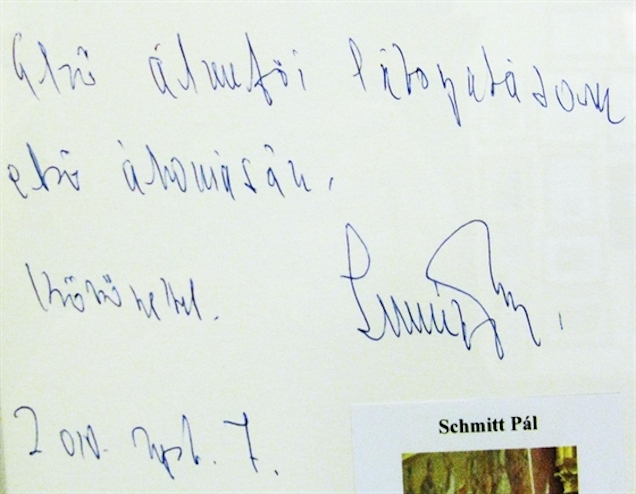 Első államfői látogatásom
első álomásán.
Köszönettel.
2010. szept. 7.
Schmitt Pál